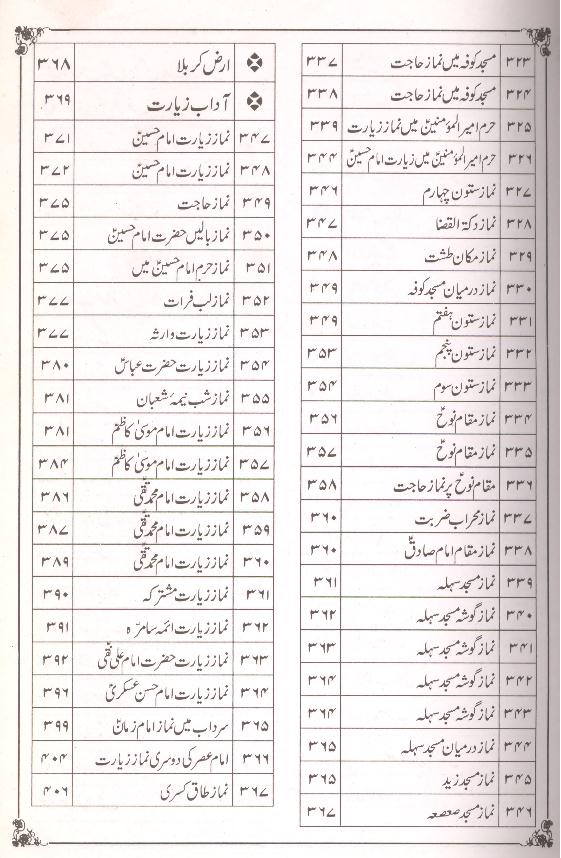 ۳۲۳ مسجد کوفہ میں نماز حاجت ۳۳۷
۳۲۴ مسجد کوفہ میں نماز حاجت ۳۳۸
۳۲۵ حرم امیر المؤمنینؑ میں نماز زیارت ۳۳۹
۳۲۶ حرم امیر المؤمنینؑ میں زیارت امام حسینؑ ۳۴۴
۳۲۷ نماز ستون چہارم ۳۴۶
۳۲۸ نماز دکۃ القضا ۳۴۷
۳۲۹ نماز مکان طشت ۳۴۸
۳۳۰ نماز درمیان مسجد کوفہ ۳۴۹
۳۳۱ نماز ستون ہفتم ۳۴۹
۳۳۲ نماز ستون پنجم ۳۵۳
۳۳۳ نماز ستون سوم ۳۵۴
۳۳۴ نماز مقام نوحؑ ۳۵۶
۳۳۵ نماز مقام نوحؑ ۳۵۷
۳۳۶ مقام نوحؑ پر نماز حاجت ۳۵۸
۳۳۷ نماز محراب ضربت ۳۶۰
۳۳۸ نماز مقام امام صادقؑ ۳۶۰
۳۳۹ نماز مسجد سہلہ ۳۶۱
۳۴۰ نماز گوشہ مسجد سہلہ ۳۶۲
۳۴۱ نماز گوشہ مسجد سہلہ ۳۶۳
۳۴۲ نماز گوشہ مسجد سہلہ ۳۶۴
۳۴۳ نماز گوشہ مسجد سہلہ ۳۶۴
۳۴۴ نماز درمیان مسجد سہلہ ۳۶۵
۳۴۵ نماز مسجد زید ۳۶۵
۳۴۶ نماز مسجد صعصعہ ۳۶۷
ارض کربلا ۳۶۸
آداب زیارت ۳۶۹
۳۴۷ نماز زیارت امام حسینؑ ۳۷۱
۳۴۸ نماز زیارت امام حسینؑ ۳۷۲
۳۴۹ نماز حاجت ۳۷۵
۳۵۰ نماز بالیں حضرت امام حسینؑ ۳۷۵
۳۵۱ نماز حرم امام حسینؑ میں ۳۷۵
۳۵۲ نماز لب فرات ۳۷۷
۳۵۳ نماز زیارت وارثہ ۳۷۷
۳۵۴ نماز زیارت حضرت عباسؑ ۳۸۰
۳۵۵ نماز شب نیمہ شعبان ۳۸۱
۳۵۶ نماز زیارت امام موسیٰ کاظمؑ ۳۸۱
۳۵۷ نماز زیارت امام موسیٰ کاظمؑ ۳۸۴
۳۵۸ نماز زیارت امام محمد تقیؑ ۳۸۶
۳۵۹ نماز زیارت امام محمد تقیؑ ۳۸۷
۳۶۰ نماز زیارت امام محمد تقیؑ ۳۸۹
۳۶۱ نماز زیارت مشترکہ ۳۹۰
۳۶۲ نماز زیارت ائمہ سامرّہ ۳۹۱
۳۶۳ نماز زیارت حضرت امام علی نقیؑ ۳۹۲
۳۶۴ نماز زیارت امام حسن عسکریؑ ۳۹۶
۳۶۵ سرداب میں نماز امام زمانؑ ۳۹۹
۳۶۶ امام عصر کی دوسری نماز زیارت ۴۰۴
۳۶۷ نماز طاق کسریٰ ۴۰۶